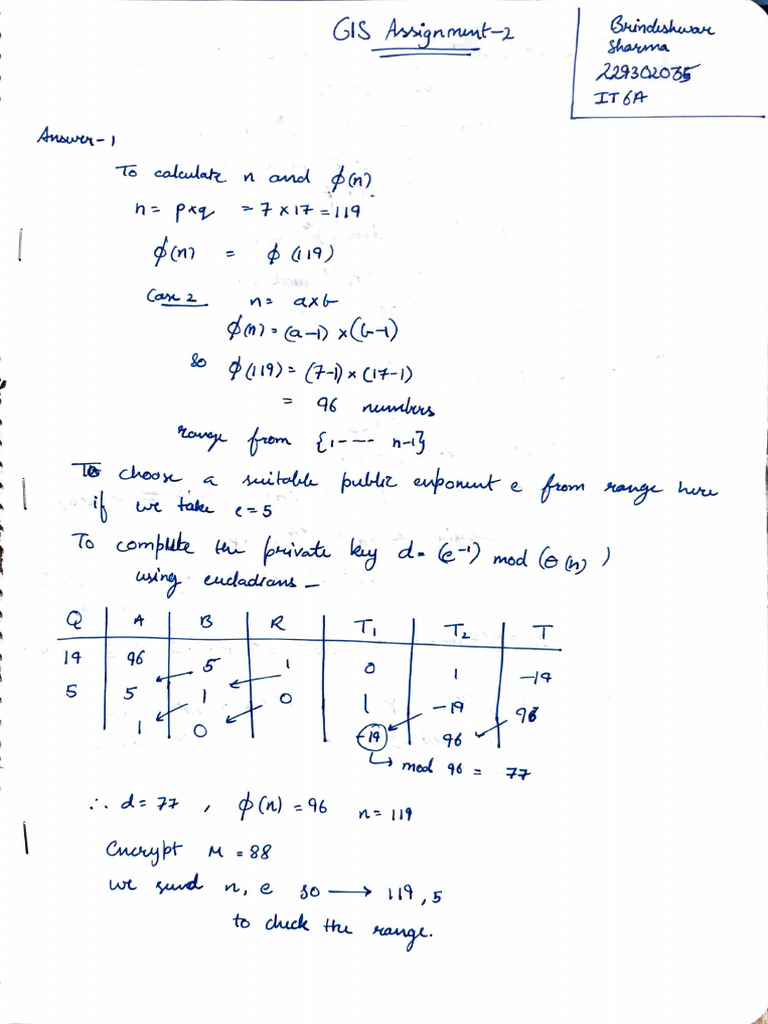 GIS Assignment-2
Brindeshwar
Sharma
229302035
IT 6A
Answer-1
To calculate n and ϕ(n)
n = p×q = 7 × 17 = 119
ϕ(n) = ϕ(119)
Case 2 n = a×b
ϕ(n) = (a-1) × (b-1)
so ϕ(119) = (7-1) × (17-1)
= 96 numbers
range from {1---- n-1}
To choose a suitable public exponent e from range here
if we take e = 5
To complete the private key d = (e⁻¹) mod (ϴ(n))
using eucladians –
Q A B R T₁ T₂ T
19 96 5 1 0 1 -19
5 5 1 0 1 -19 96
1 0 -19 96
↳ mod 96 = 77
∴ d = 77 , ϕ(n) = 96 n = 119
Encrypt M = 88
we send n, e so ⟶ 119, 5
to check the range.